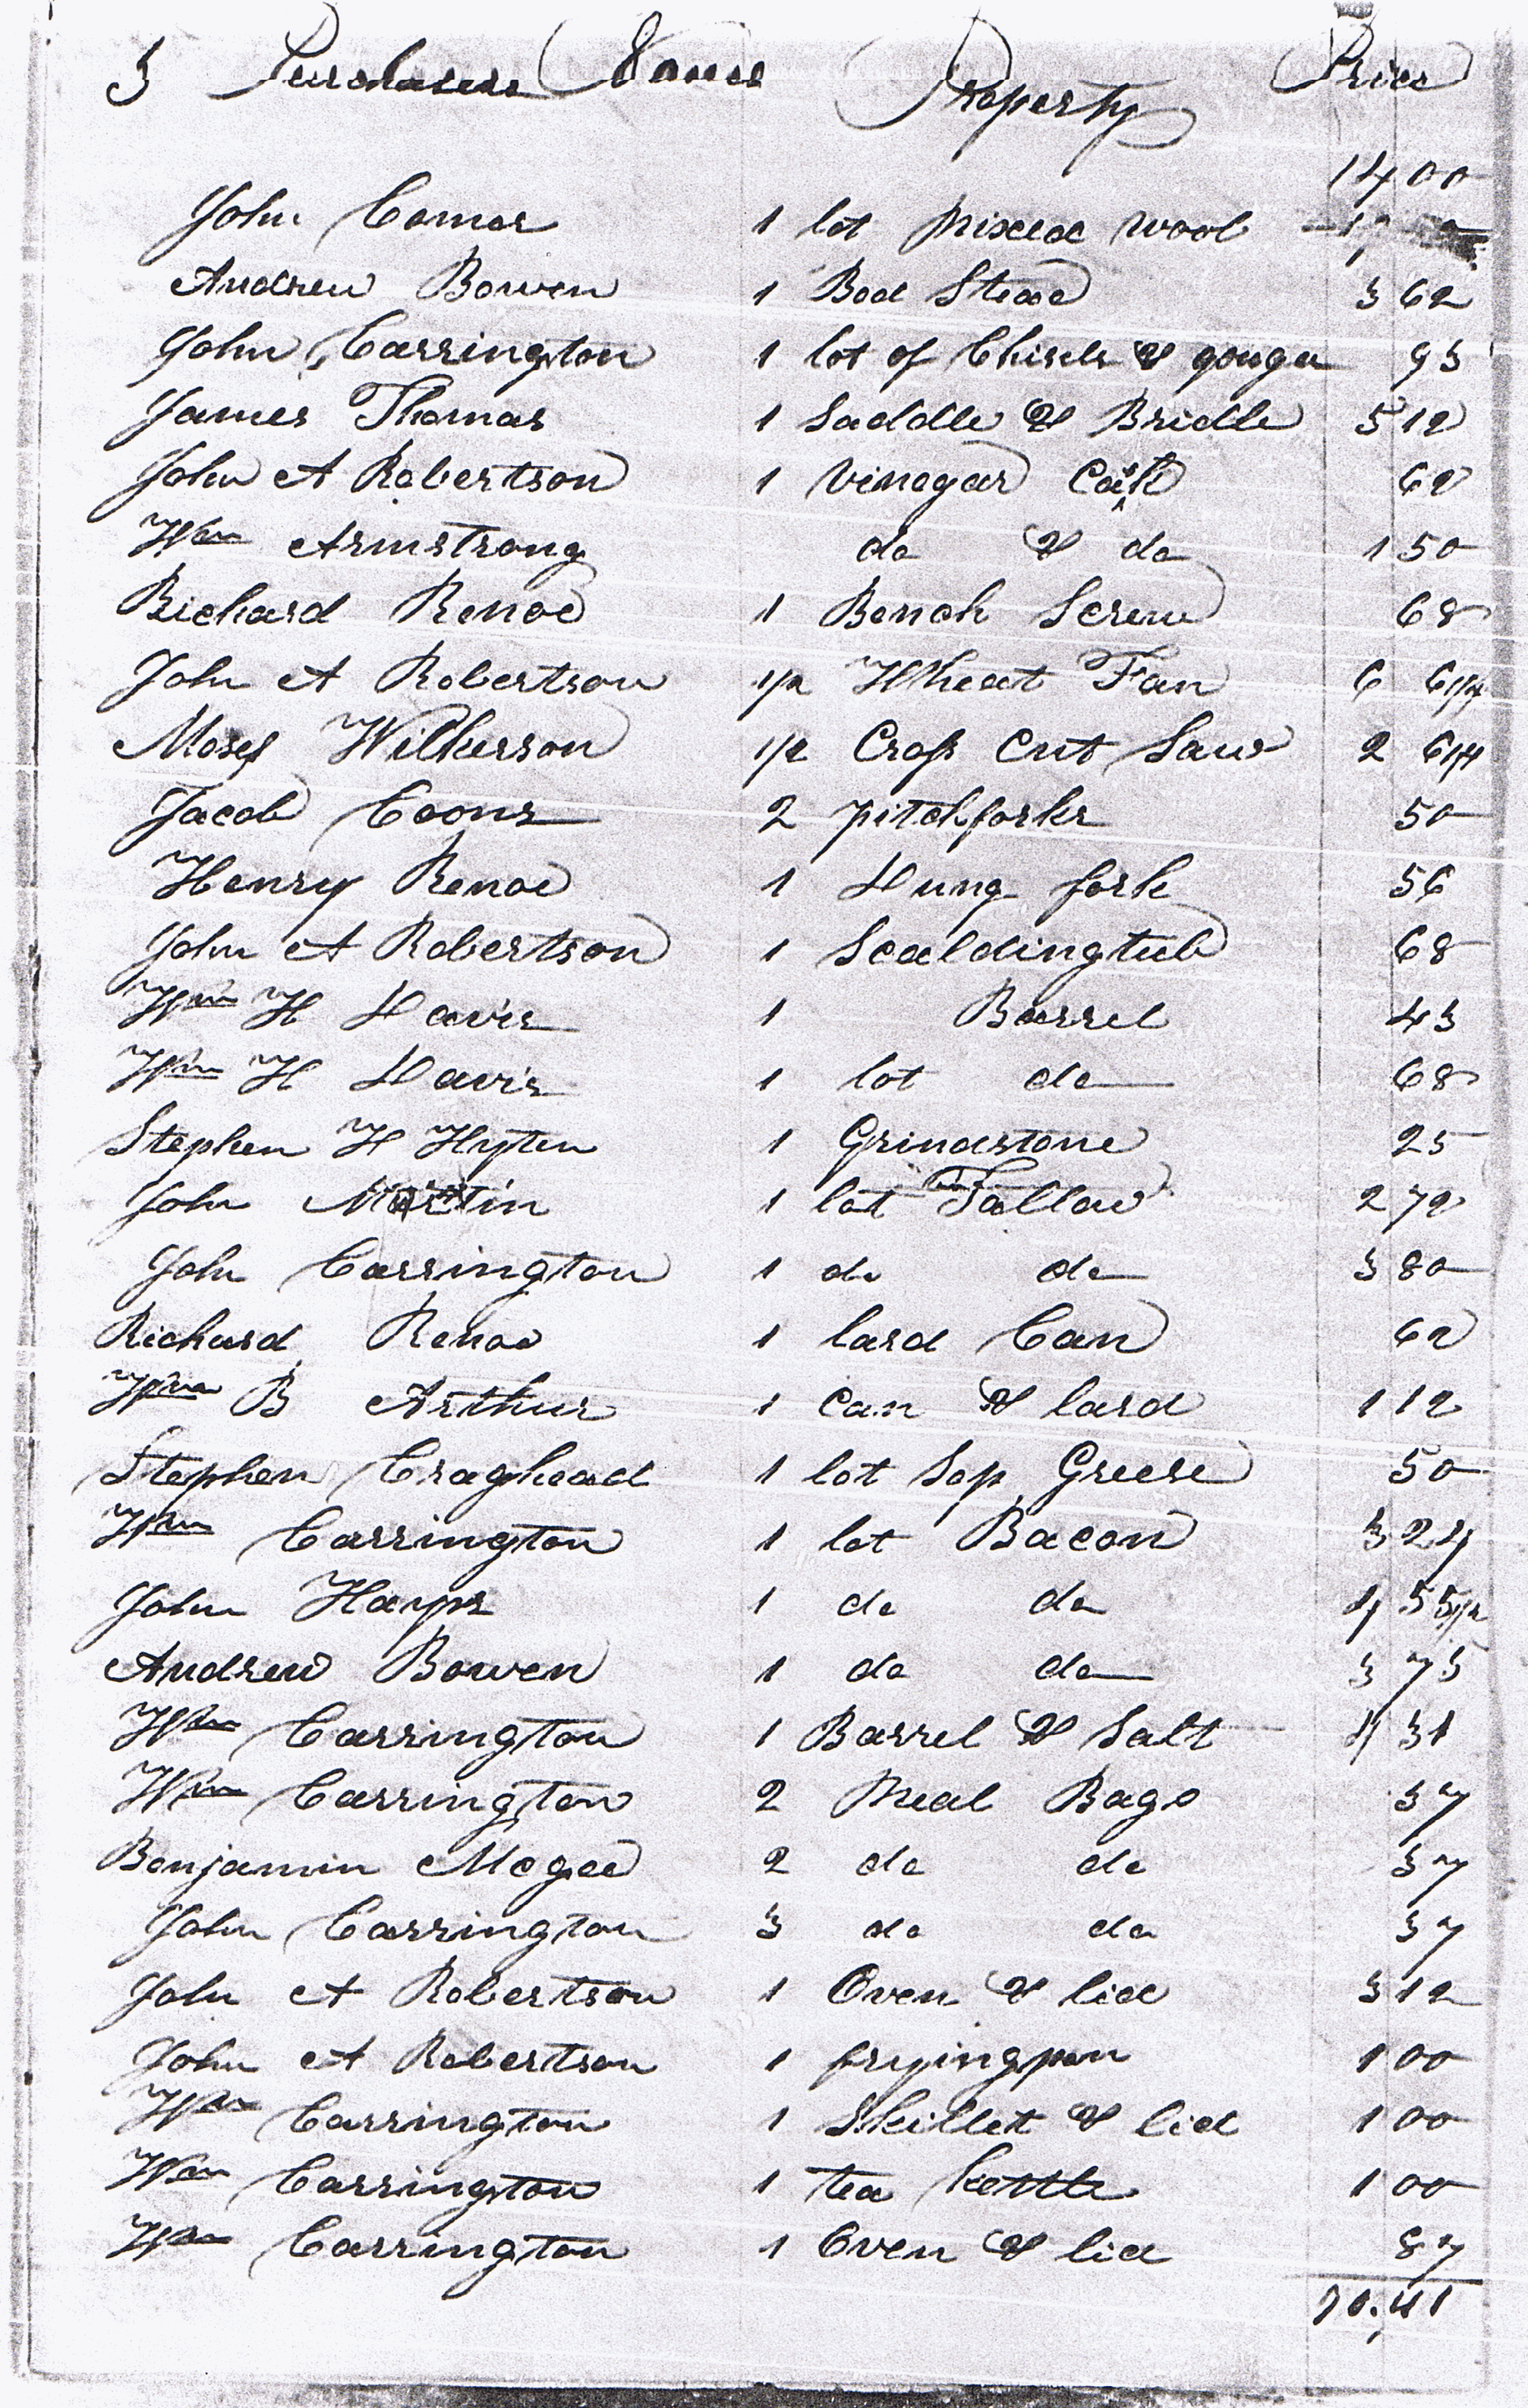 3 Purchasers Names Property Price
14 00
John Comer 1 lot Mixed wool
Andrew Bowen 1 Bed Stead 3 62
John Carrington 1 lot of Chisels & gouges 93
James Thomas 1 Saddle & Bridle 5 12
John A Robertson 1 Vinegar Cask 62
Wm Armstrong do & do 1 50
Richard Renoe 1 Bench Screw 68
John A Robertson 1/2 Wheat Fan 6 6 1/4
Moses Wilkerson 1/2 Cross Cut Saw 2 6 1/4
Jacob Coons 2 pitchforks 50
Henry Renoe 1 Dung fork 56
John A Robertson 1 Scaldingtub 68
Wm H Davis 1 Barrel 43
Wm H Davis 1 lot do 68
Stephen H Hyten 1 Grindstone 25
John Martin 1 lot Tallow 2 72
John Carrington 1 do do 3 80
Richard Renoe 1 lard Can 62
Wm B Arthur 1 Can & lard 1 12
Stephen Craghead 1 lot Sop Greese 50
Wm Carrington 1 lot Bacon 3 24
John Hayps 1 do do 4 55 1/2
Andrew Bowen 1 do do 3 75
Wm Carrington 1 Barrel & Salt 4 31
Wm Carrington 2 Meal Bags 37
Benjamin Mcgee 2 do do 37
John Carrington 3 do do 37
John A Robertson 1 Oven & lid 3 12
John A Robertson 1 fryingpan 1 00
Wm Carrington 1 Skillet & lid 1 00
Wm Carrington 1 tea kettle 1 00
Wm Carrington 1 Oven & lid 87
70.41